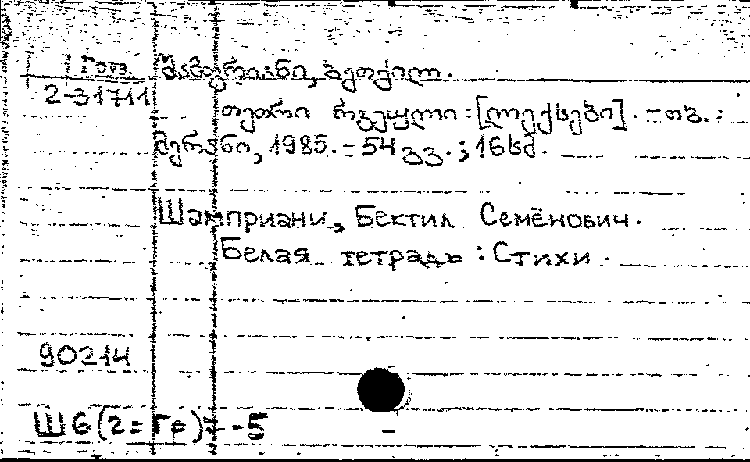 შამფრიანი, ბექტილ.
2-31711
თეთრი რვეული: [ლექსები]. - თბ.:
მერანი, 1985. - 54 გვ.; 16სმ.
Шамприани, Бектил Семёнович.
Белая тетрадь: Стихи.
90214
Ш6(2=Ге)7-5